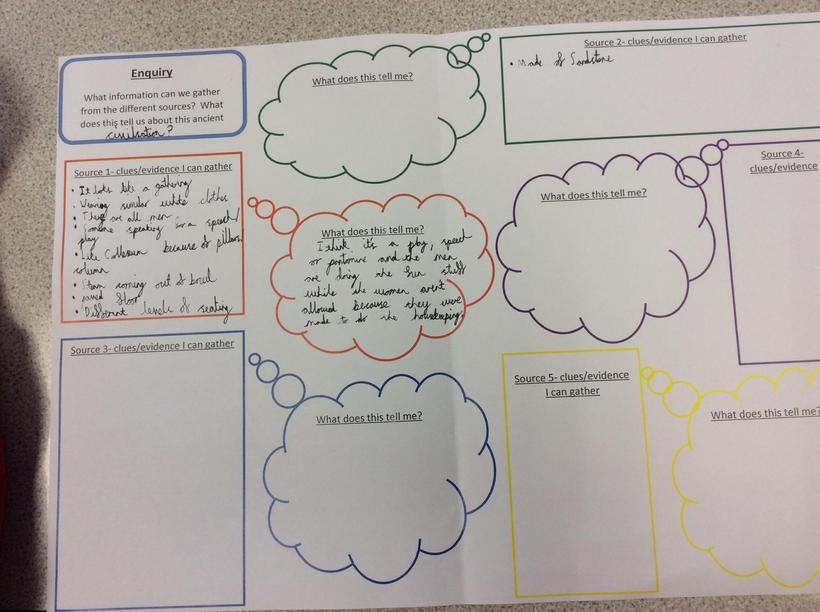 Enquiry
What information can we gather
from the different sources? What
does this tell us about this ancient
civilisation?
Source 1- clues/evidence I can gather
• It lots like a gathering
• Wearing similar white clothes
• They are all men
• Someone speaking in a speech/
play
• Like Colleseum because of pillars/
column
• Steam coming out of bowl
• floor
• Different levels of seating
What does this tell me?
What does this tell me?
I think it's a play, speech
or pantomine and the men
are doing the fun stuff
while the women aren't
allowed because they were
made to do the housekeeping.
Source 2- clues/evidence I can gather
• Made of Sandstone
What does this tell me?
Source 4-
clues/evidence
Source 3- clues/evidence I can gather
What does this tell me?
Source 5- clues/evidence
I can gather
What does this tell me?